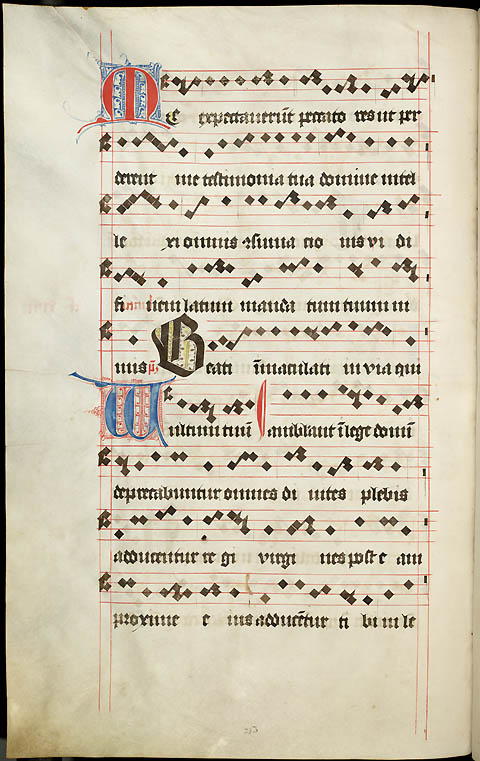 ME expectaverūt peccato res ut per
derent me testimonia tua domine intel
le xi omnis 9suma cio nis vi di
finem latum manda tum tuum ni
mis p̄s Beati īmaculati in via qui
Vultum tuū ambulant ī lege domī
deprecabuntur omnes di vites plebis
adducentur re gi virgi nes post e am
proxime e ius adducētur ti bi in le